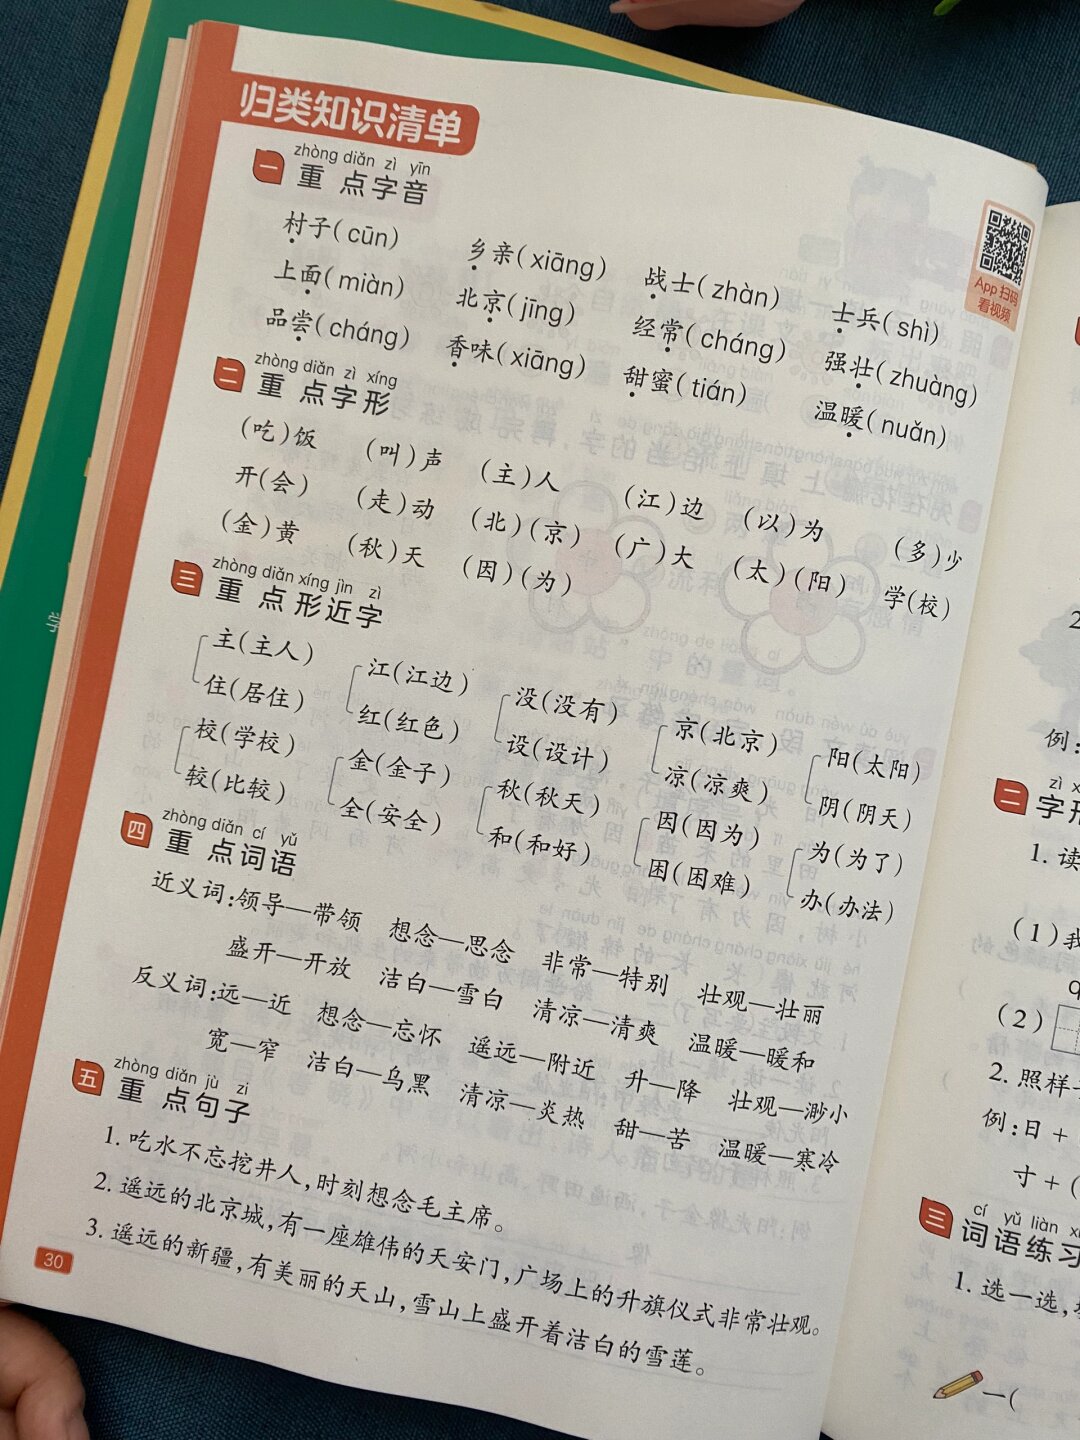 归类知识清单
App 扫码
看视频
zhòng diǎn zì yīn
一 重点字音
村子(cūn) 乡亲(xiāng) 战士(zhàn) 士兵(shì)
上面(miàn) 北京(jīng) 经常(cháng) 强壮(zhuàng)
品尝(cháng) 香味(xiāng) 甜蜜(tián) 温暖(nuǎn)
zhòng diǎn zì xíng
二 重点字形
(吃)饭 (叫)声 (主)人 (江)边 (以)为 (多)少
开(会) (走)动 (北)(京) (广)大 (太)(阳) 学(校)
(金)黄 (秋)天 (因)(为)
zhòng diǎn xíng jìn zì
三 重点形近字
主(主人) 江(江边) 没(没有) 京(北京) 阳(太阳)
住(居住) 红(红色) 设(设计) 凉(凉爽) 阴(阴天)
校(学校) 金(金子) 秋(秋天) 因(因为) 为(为了)
较(比较) 全(安全) 和(和好) 困(困难) 办(办法)
zhòng diǎn cí yǔ
四 重点词语
近义词:领导—带领 想念—思念 非常—特别 壮观—壮丽
盛开—开放 洁白—雪白 清凉—清爽 温暖—暖和
反义词:远—近 想念—忘怀 遥远—附近 升—降 壮观—渺小
宽—窄 洁白—乌黑 清凉—炎热 甜—苦 温暖—寒冷
zhòng diǎn jù zi
五 重点句子
1. 吃水不忘挖井人,时刻想念毛主席。
2. 遥远的北京城,有一座雄伟的天安门,广场上的升旗仪式非常壮观。
3. 遥远的新疆,有美丽的天山,雪山上盛开着洁白的雪莲。
30
2
例:
zì
二 字形
1. 读
(1)我
q
(2)
2. 照样
例:日+
寸+(
cí yǔ liàn
三 词语练习
1. 选一选,
一(